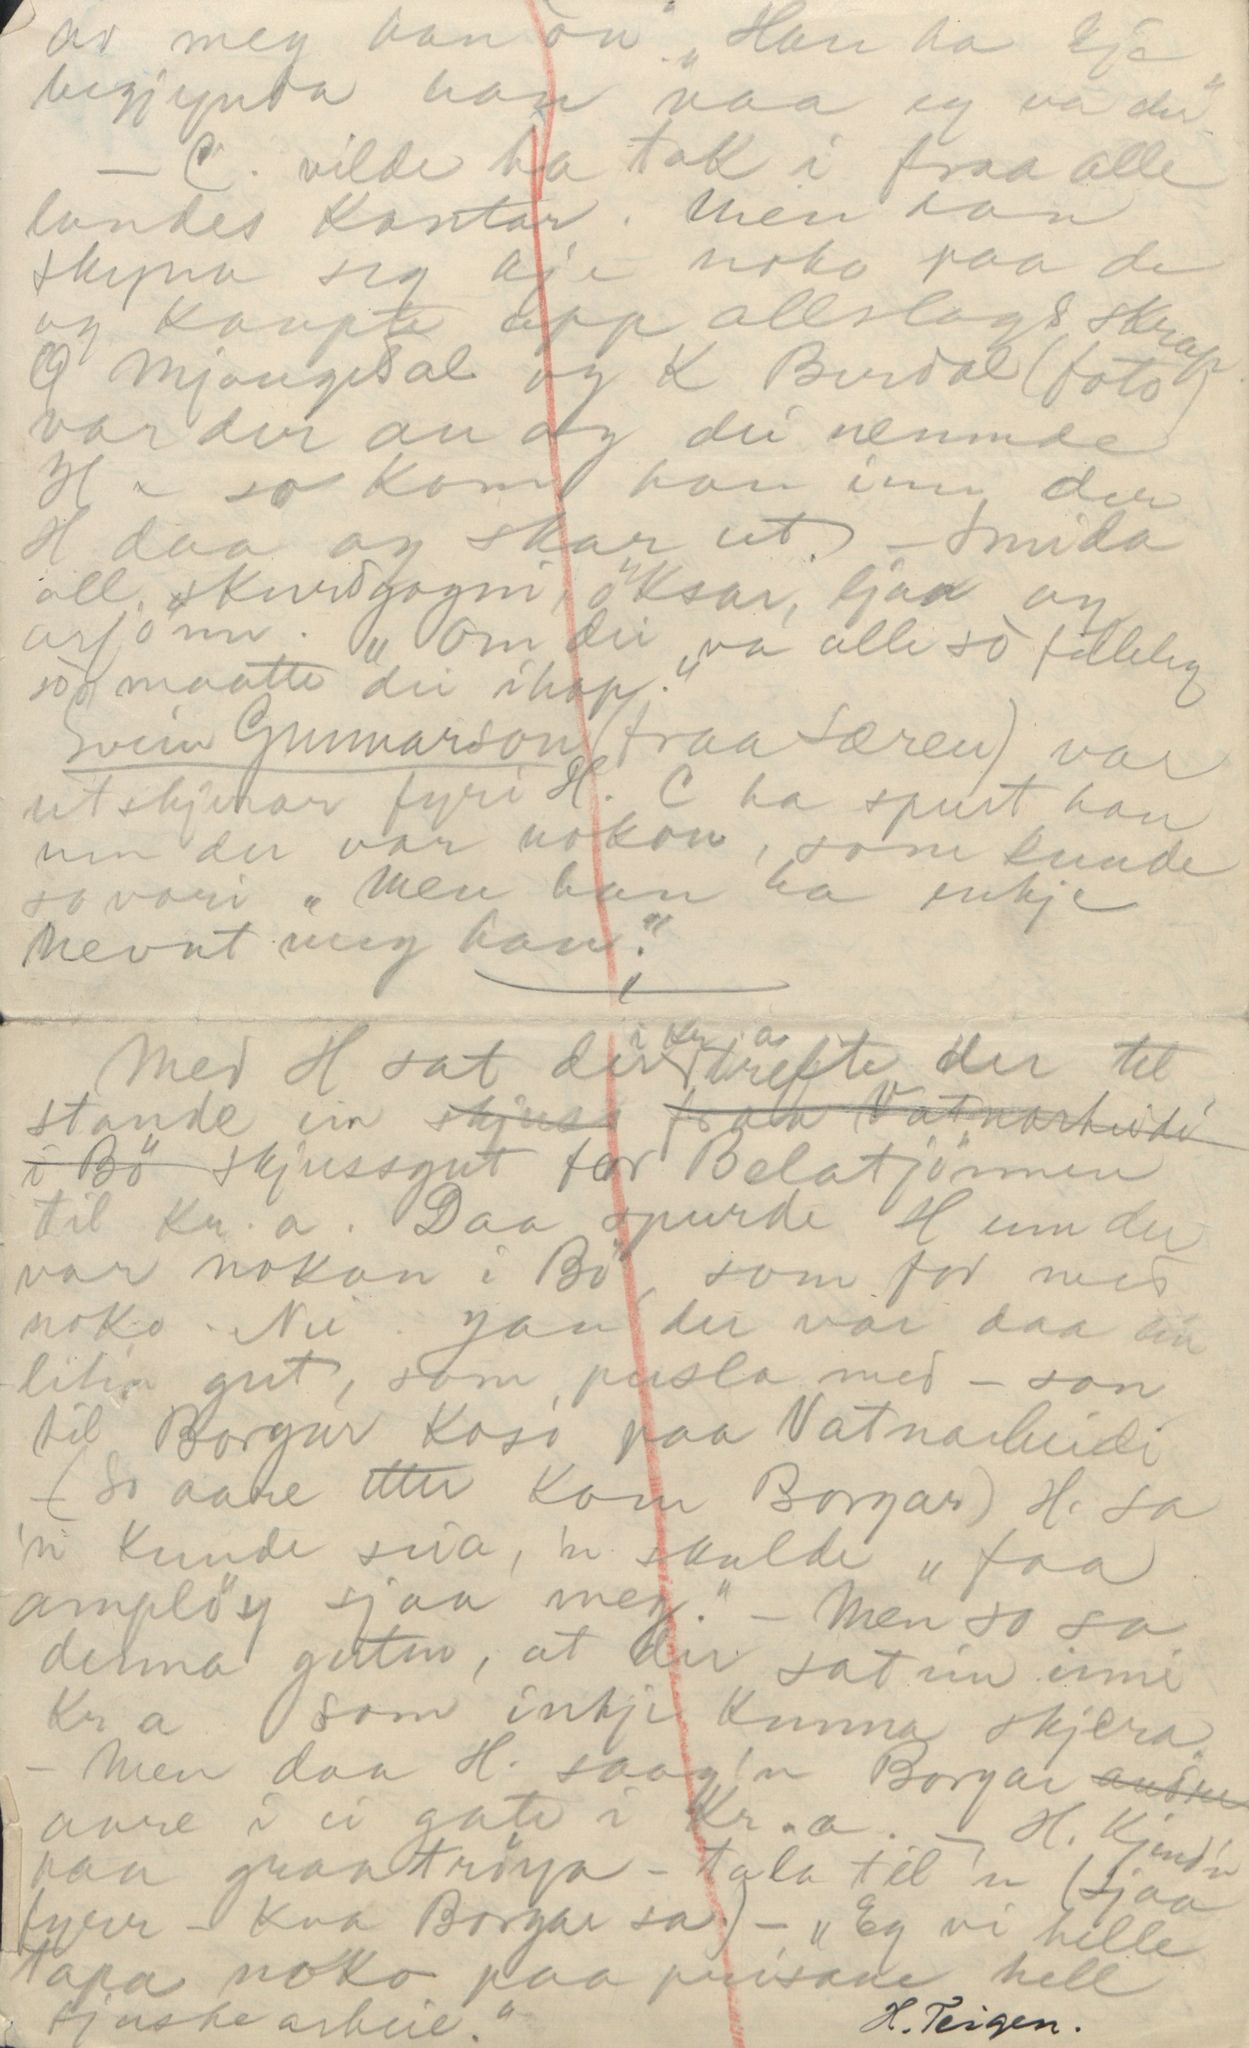 av meg han òn" „Han ha kje
begjynda han naa eg va der"
— C. vilde ha tak i fraa alle
landes kantar. Men han
skyna seg kje noko paa de
og kaupte upp allslags skrap
O Mjaugedal og K Burdal (foto)
var der au og dei nemnde
H - so kom han inn der
H daa og skar ut. — Smida
all skurdgogni, öksar, ljaa og
arjönn. „Om dei va alle so filleleg
so maatte dei ihop."
Svein Gunnarson (fraa Særen) var
utskjerar fyri H. C ha spurt han
um der var nokon, som kunde
so vori „Men han ha inkje
nevnt meg han."
Med H sat der i Kr.a. trefte der til
stande ein skjuss fraa Vatnarbeidi
i Bö skjussgut for Belatjönnen
til Kr.a. Daa spurde H um der
var nokon i Bö, som for med
noko. Nei. Jau der var daa ein
liten gut, som pusla med — son
til Borgar Kosi paa Vatnarbeidi
— (So aare etter kom Borgar) H. sa
'n kunde sia, 'n skulde „faa
amplöy sjaa meg." — Men so sa
denna guten, at der sat ein inni
Kr.a som inkje kunna skjera
— Men daa H. saag'n Borgar andre
aare i ei gate i Kr.a. —, H. kjend'n
paa graatröya — tala til 'n (sjaa
fyrr — kva Borgar sa) — „Eg vi helle
tapa noko paa prisane hell
sjuske arbeie."
H. Teigen.